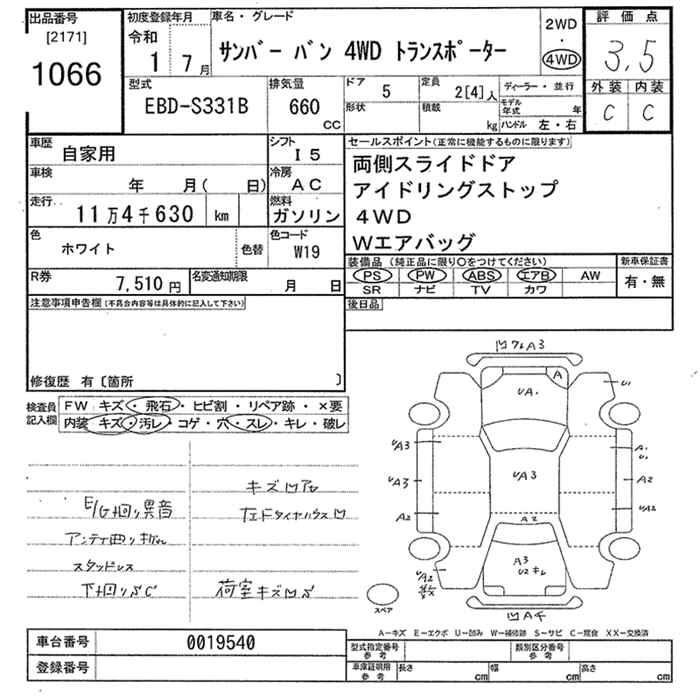 出品番号
[2171]
1066
初度登録年月
令和
1 7月
車名・グレード
サンバー バン 4WD トランスポーター
2WD
・
4WD
評価点
3.5
外装 内装
C C
型式
EBD-S331B
排気量
660
CC
ドア
5
形状
定員
2[4]人
積載
kg
ディーラー・並行
モデル年式 年
ハンドル 左・右
車歴
自家用
シフト
I5
車検
年 月( 日)
冷房
AC
走行
11万4千630 km
燃料
ガソリン
色
ホワイト
色替
色コード
W19
R券
7,510円
名変通知期限
月 日
セールスポイント(正常に機能するものに限ります)
両側スライドドア
アイドリングストップ
4WD
Wエアバッグ
装備品 (純正品に限り○をつけてください)
PS PW ABS エアB AW
SR ナビ TV カワ
新車保証書
有・無
後日品
注意事項申告欄(不具合内容等は具体的に記入して下さい)
修復歴 有〔箇所 〕
検査員
記入欄
FW キズ・飛石・ヒビ割・リペア跡・×要
内装 キズ・汚レ・コゲ・穴・スレ・キレ・破レ
キズ凹アセ
E/G回り異音
左ドタイヤハウス凹
アンテナ曲り折れ
スタッドレス
下回りSC
荷室キズ凹S
凹ワレA3
A
UA.
U1
UA3
A.
U.
UA3
UA3
A2
A2
A2
UA2
A3
U2 キレ
UA2
凹Aチ
スペア
A―キズ E―エクボ U―凹み W―補修跡 S―サビ C―腐食 XX―交換済
車台番号
0019540
登録番号
型式指定番号
参考
類別区分番号
参考
車庫証明用
参考
長さ cm
幅 cm
高さ cm